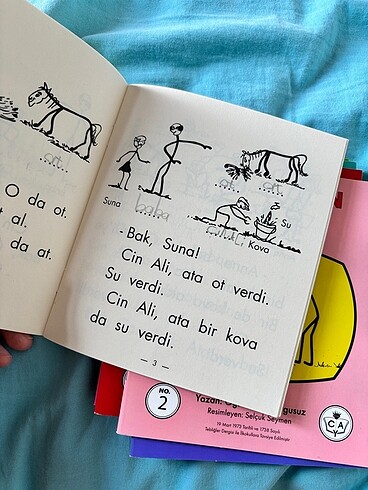 at
O da ot.
al.
da at.
ot at
Suna baba
Su
Kova
- Bak, Suna!
Cin Ali, ata ot verdi.
Su verdi.
Cin Ali, ata bir kova
da su verdi.
— 3 —
NO.
2
Resimleyen: Selçuk Seymen
19 Mart 1973 Tarihli ve 1738 Sayılı
Tebliğler Dergisi ile İlkokullara Tavsiye Edilmiştir
C A